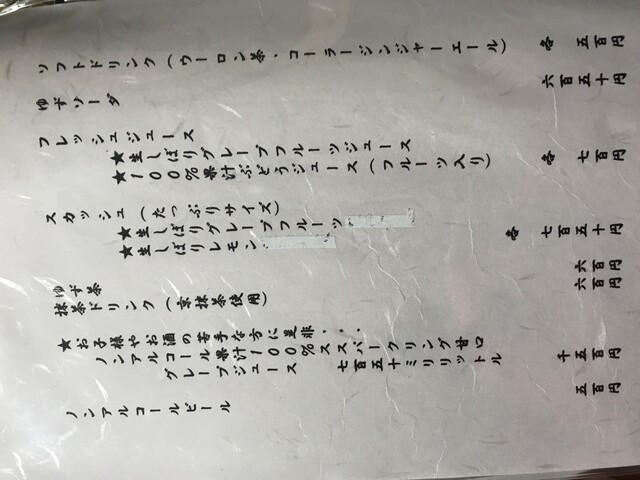 ソフトドリンク（ウーロン茶・コーラージンジャーエール） 各 五百円
ゆずソーダ 六百五十円
フレッシュジュース
★生しぼりグレープフルーツジュース
★１００％果汁ぶどうジュース（フルーツ入り） 各 七百円
スカッシュ（たっぷりサイズ）
★生しぼりグレープフルーツ
★生しぼりレモン 各 七百五十円
ゆず茶 六百円
抹茶ドリンク（京抹茶使用） 六百円
★お子様やお酒の苦手な方に是非・・・
ノンアルコール果汁１００％スパークリング甘口
グレープジュース 七百五十ミリリットル 千五百円
ノンアルコールビール 五百円